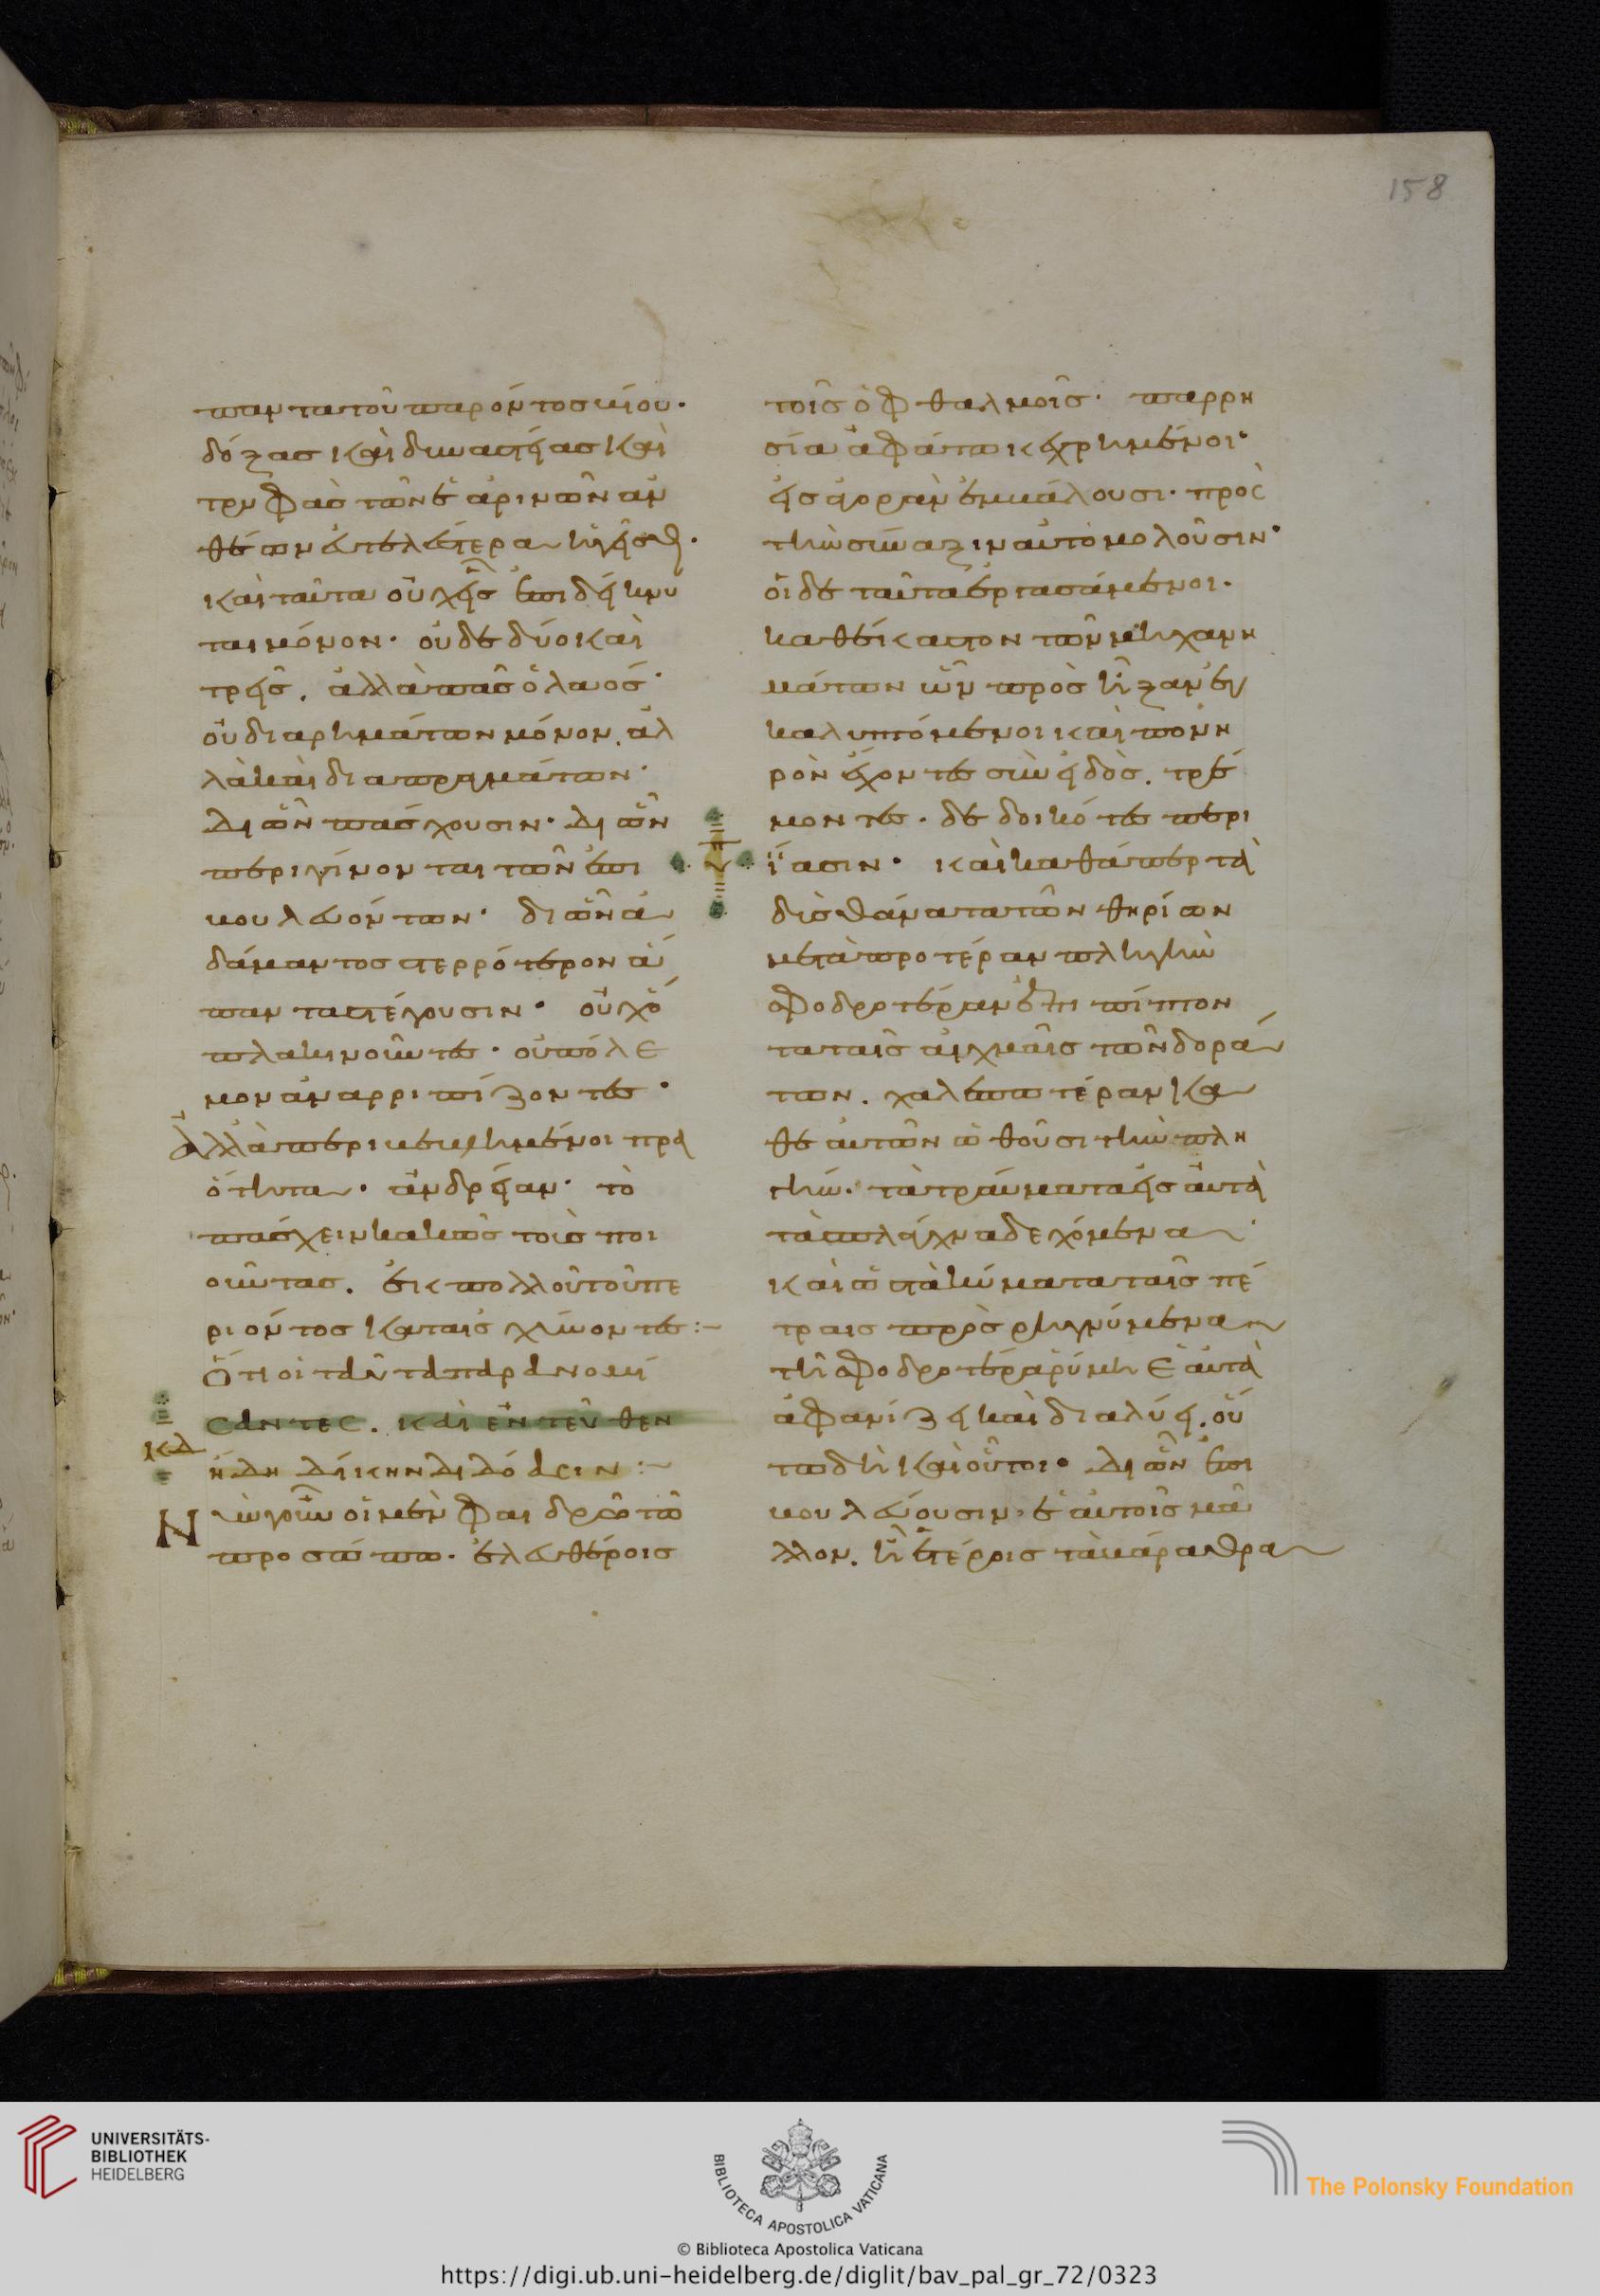 παντα τοῦ παρόντος βίου·
δόξας καὶ δυναστείας καὶ
τρυφὰς τῶν ἐαρινῶν ἀν
θέων εὐτελέστερα ἡγεῖσθαι·
καὶ ταῦτα οὐχ εἷς ἐπιδείκνυ
ται μόνον· οὐδὲ δύο καὶ
τρεῖς, ἀλλὰ πᾶς ὁ λαός·
οὐ διὰ ρημάτων μόνον, ἀλ
λὰ καὶ διὰ πραγμάτων·
Δι ὧν πάσχουσιν· Δι ὧν
περιγίνονται τῶν ἐπι
βουλευόντων· δι ὧν ἀ
δάμαντος στερρότερον ἅ
παντα στέγουσιν· οὐχ ὅ
πλα κινοῦντες· οὐ πόλε
μον ἀναρριπίζοντες·
ἀλλὰ περιβεβλημένοι πρα
ότητα· ἀνδρείαν· τὸ
πάσχειν κακῶς τοὺς ποι
οῦντας, ἐκ πολλοῦ τοῦ πε
ριόντος καταισχύνοντες :~
Ὅτι οἱ ταῦτα παρανομή
σαντες, καὶ ἐντεῦθεν
κδ
ἤδη δίκην διδόασιν :~
Νῦν γοῦν οἱ μὲν φαιδρῶ τῶ
προσώπω· ἐλευθέροις
158
τοῖς ὀφθαλμοῖς· παρρη
σία ἀφάτω κεχρημένοι·
εἰς ἀγορὰν ἐμβάλουσι· πρὸς
τὴν σύναξιν αὐτομολοῦσιν·
οἱ δὲ ταῦτα ἐργασάμενοι·
καθ ἕκαστον τῶν μηχανη
μάτων ὧν πρὸς ἦξαν ἐγ
καλυπτόμενοι καὶ πονη
ρὸν ἔχοντες συνειδὸς, τρέ
μοντες· δεδοικότες περι
ΐασιν· καὶ καθάπερ τὰ
δυσθάνατα τῶν θηρίων
μετὰ προτέραν πληγὴν
σφοδροτέραν ἔτι πίπτον
τα ταῖς αἰχμαῖς τῶν δορά
των, χαλεπωτέραν κα
θ ἑαυτῶν ὠθοῦσι τὴν πλη
γήν· τὰ τραύματα εἰς αὐτὰ
τὰ σπλάγχνα δεχόμενα·
καὶ ὥσπερ τὰ κύματα ταῖς πέ
τραις προσρηγνύμενα
τῇ σφοδροτέρα ρύμῃ ἑαυτὰ
ἀφανίζει καὶ διαλύει, οὕ
τω δὴ καὶ οὗτοι· Δι ὧν ἐπι
βουλεύουσιν· ἑαυτοῖς μᾶ
λλον, ἢ ἑτέροις τὰ βάραθρα
UNIVERSITÄTS-
BIBLIOTHEK
HEIDELBERG
BIBLIOTECA APOSTOLICA VATICANA
The Polonsky Foundation
© Biblioteca Apostolica Vaticana
https://digi.ub.uni-heidelberg.de/diglit/bav_pal_gr_72/0323